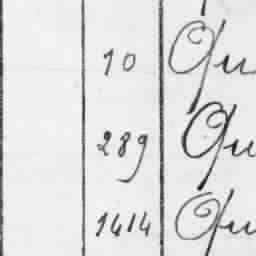 10 Qu
289 Qu
1414 Qu